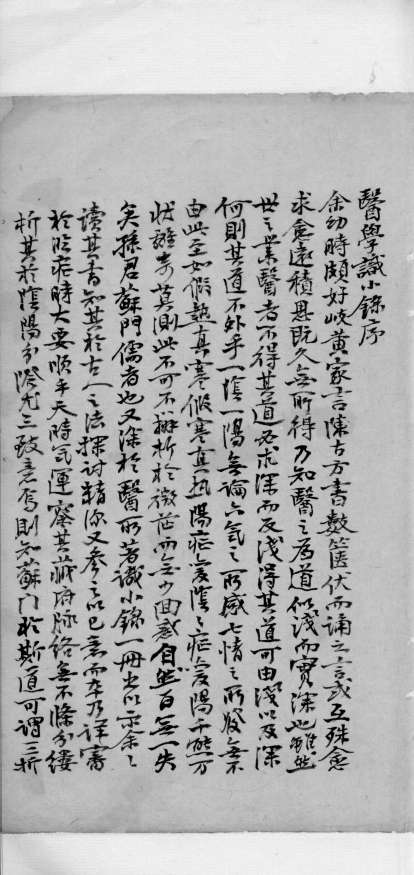 醫學識小錄序
余幼時頗好岐黃家言陳古方書數篋伏而誦之言或互殊愈
求愈遠積思既久無所得乃知醫之為道似淺而實深也雖然
世之業醫者不得其道必求深而反淺得其道可由淺以及深
何則其道不外乎一陰一陽無論六氣之所感七情之所發無不
由此至如假熱真寒假寒真熱陽症變陰陰症變陽千態萬
狀離奇莫測此不可不辨析於微茫而無少回惑自然百無一失
矣孫君蘇門儒者也又深於醫所著識小錄一冊出以示余余
讀其書知其於古人之法探討精深又參之以己意而本乃詳審
於臨症時大要順乎天時氣運察其臟府脈絡無不條分縷
析其於陰陽分際尤三致意焉則知蘇門於斯道可謂三折